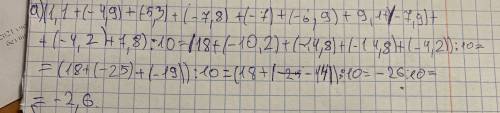 а) (1,1 + (-4,9) + (-5,3) + (-7,8) + (-7) + (-6,9) + 9,1 + (-7,9) +
+ (-4,2) + 7,8) : 10 = (18 + (-10,2) + (-14,8) + (-14,8) + (-4,2)) : 10 =
= (18 + (-25) + (-19)) : 10 = (18 + (-25 - 14)) : 10 = -26 : 10 =
= -2,6.